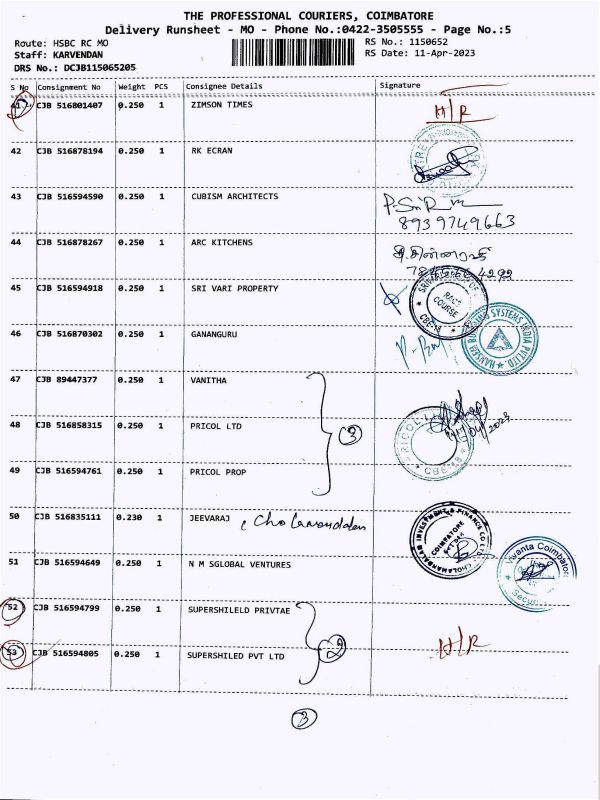 THE PROFESSIONAL COURIERS, COIMBATORE
Delivery Runsheet - MO - Phone No.:0422-3505555 - Page No.:5
Route: HSBC RC MO
Staff: KARVENDAN
DRS No.: DCJB115065205
RS No.: 1150652
RS Date: 11-Apr-2023
S No Consignment No Weight PCS Consignee Details Signature
41 CJB 516801407 0.250 1 ZIMSON TIMES H/R
42 CJB 516878194 0.250 1 RK ECRAN
43 CJB 516594590 0.250 1 CUBISM ARCHITECTS
8939749663
44 CJB 516878267 0.250 1 ARC KITCHENS
45 CJB 516594918 0.250 1 SRI VARI PROPERTY
RACE COURSE
CBE-18
46 CJB 516870302 0.250 1 GANANGURU
SYSTEMS INDIA PVT LTD
47 CJB 89447377 0.250 1 VANITHA
48 CJB 516858315 0.250 1 PRICOL LTD 3
PRICOL
CBE-18
49 CJB 516594761 0.250 1 PRICOL PROP
50 CJB 516835111 0.230 1 JEEVARAJ
CHOLAMANDALAM INVESTMENT & FINANCE CO LTD
COIMBATORE
51 CJB 516594649 0.250 1 N M SGLOBAL VENTURES
Vivanta Coimbatore
Security
52 CJB 516594799 0.250 1 SUPERSHILELD PRIVTAE
53 CJB 516594805 0.250 1 SUPERSHILED PVT LTD 2 H/R
3